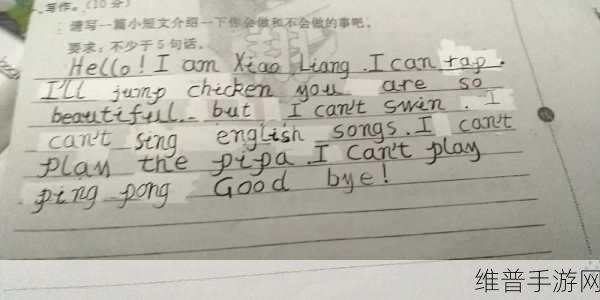 、写作。(10分)
请写一篇小短文介绍一下你会做和不会做的事吧。
要求：不少于5句话。
Hello! I am Xiao Liang. I can rap.
I'll jump chicken you are so
beautiful. but I can't swin. I
can't sing english songs. I can't
play the pipa. I can't play
ping pong Good bye!
维普手游网